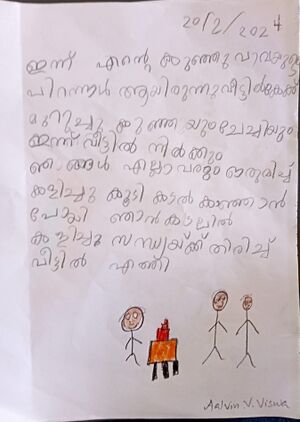 20/2/2024
ഇന്ന് എന്റെ കുഞ്ഞുവാവയുടെ
പിറന്നാൾ ആയിരുന്നു വീട്ടിൽ കേക്ക്
മുറിച്ചു കുഞ്ഞയും ചേച്ചിയും
ഇന്ന് വീട്ടിൽ നിൽക്കും
ഞങ്ങൾ എല്ലാവരും ഒരുമിച്ച്
കളിച്ചു കൂടി കടൽ കാണാൻ
പോയി ഞാൻ കടലിൽ
കുളിച്ചു സന്ധ്യയ്ക്ക് തിരിച്ച്
വീട്ടിൽ എത്തി
Aalvin V. Viswa